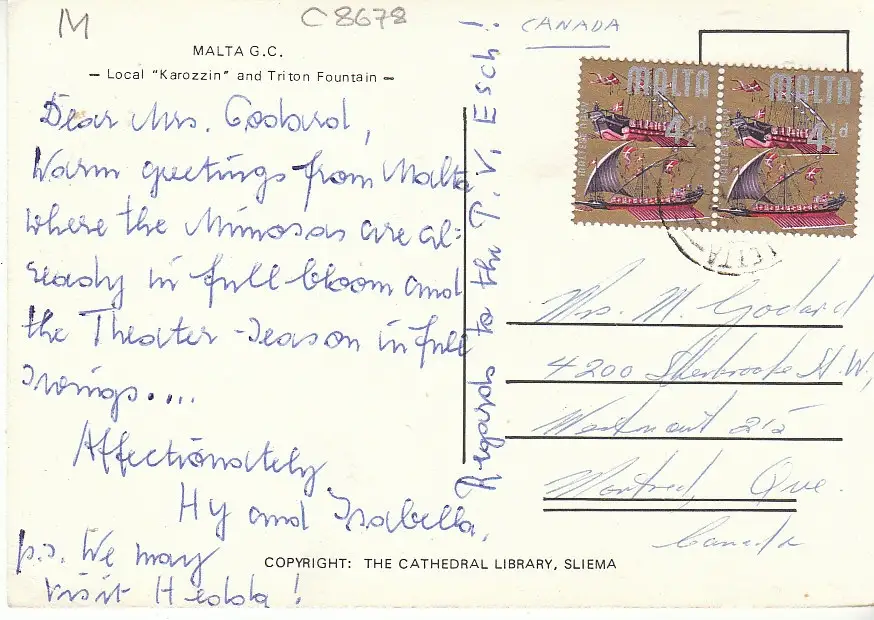 M
C8678
CANADA
MALTA G.C.
– Local "Karozzin" and Triton Fountain –
MALTA
4½d
MALTA
4½d
Dear Mrs. Godard,
Warm greetings from Malta
where the Mimosas are al=
ready in full bloom and
the Theater-season in full
swings....
Affectionately
Hy and Isabella.
p.s. We may
visit Hedda!
Regards to the P.V. Esch!
Mrs. M. Godard
4200 Sherbrooke St. W.,
Westmount 215
Montreal, Que.
Canada
COPYRIGHT: THE CATHEDRAL LIBRARY, SLIEMA